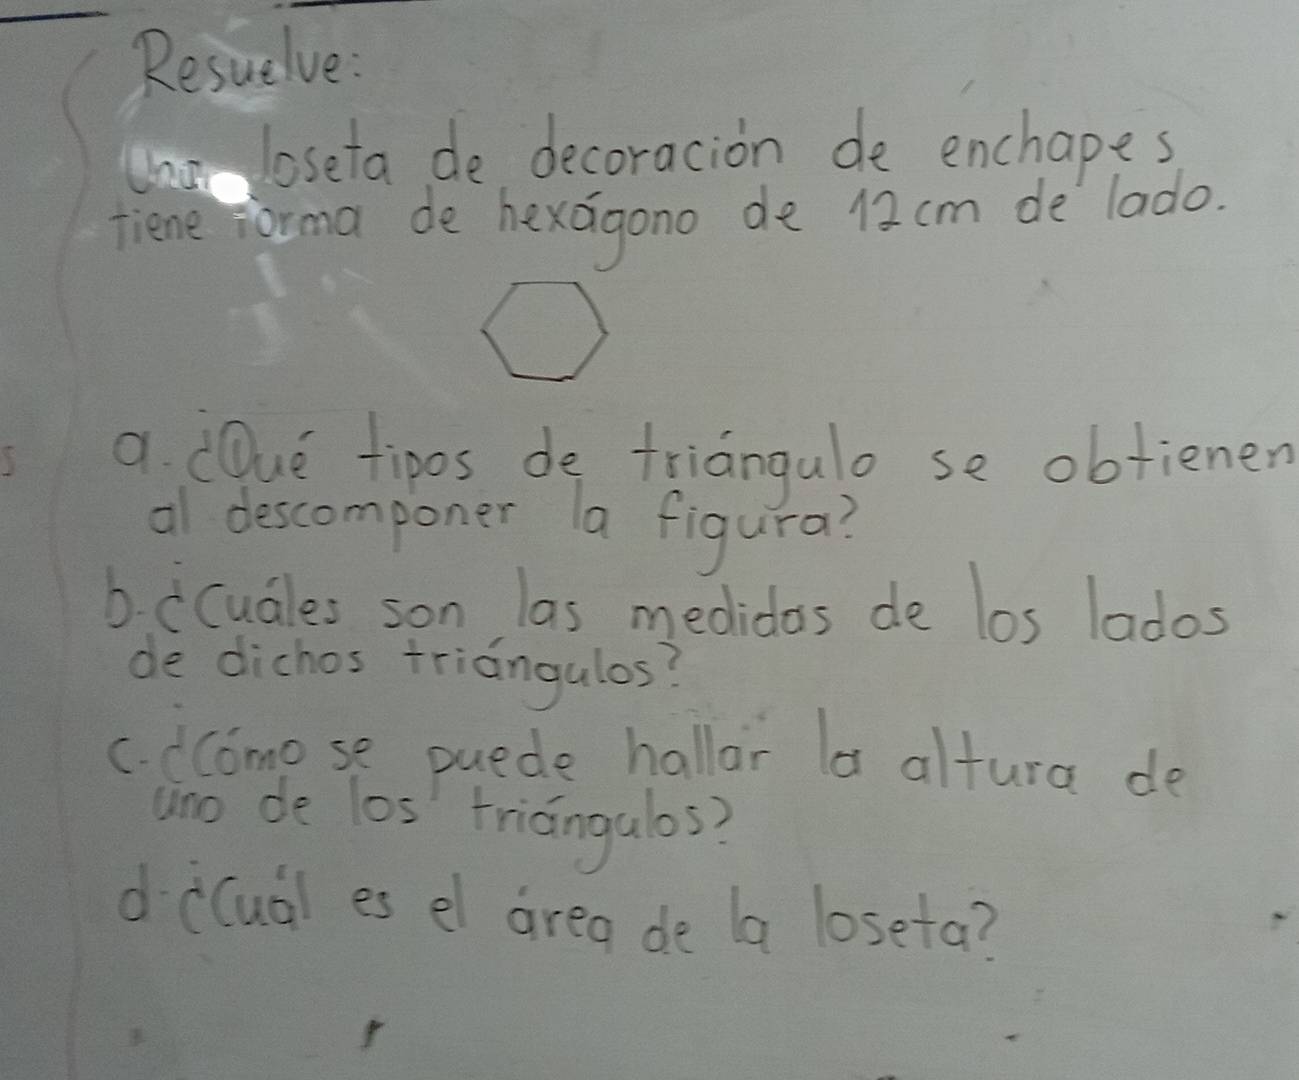 Resuelve:
Una loseta de decoración de enchapes
tiene forma de hexágono de 12 cm de lado.
a. ¿Qué tipos de triángulo se obtienen
al descomponer la figura?
b. ¿Cuáles son las medidas de los lados
de dichos triángulos?
c. ¿Cómo se puede hallar la altura de
uno de los triángulos?
d. ¿Cuál es el área de la loseta?
s